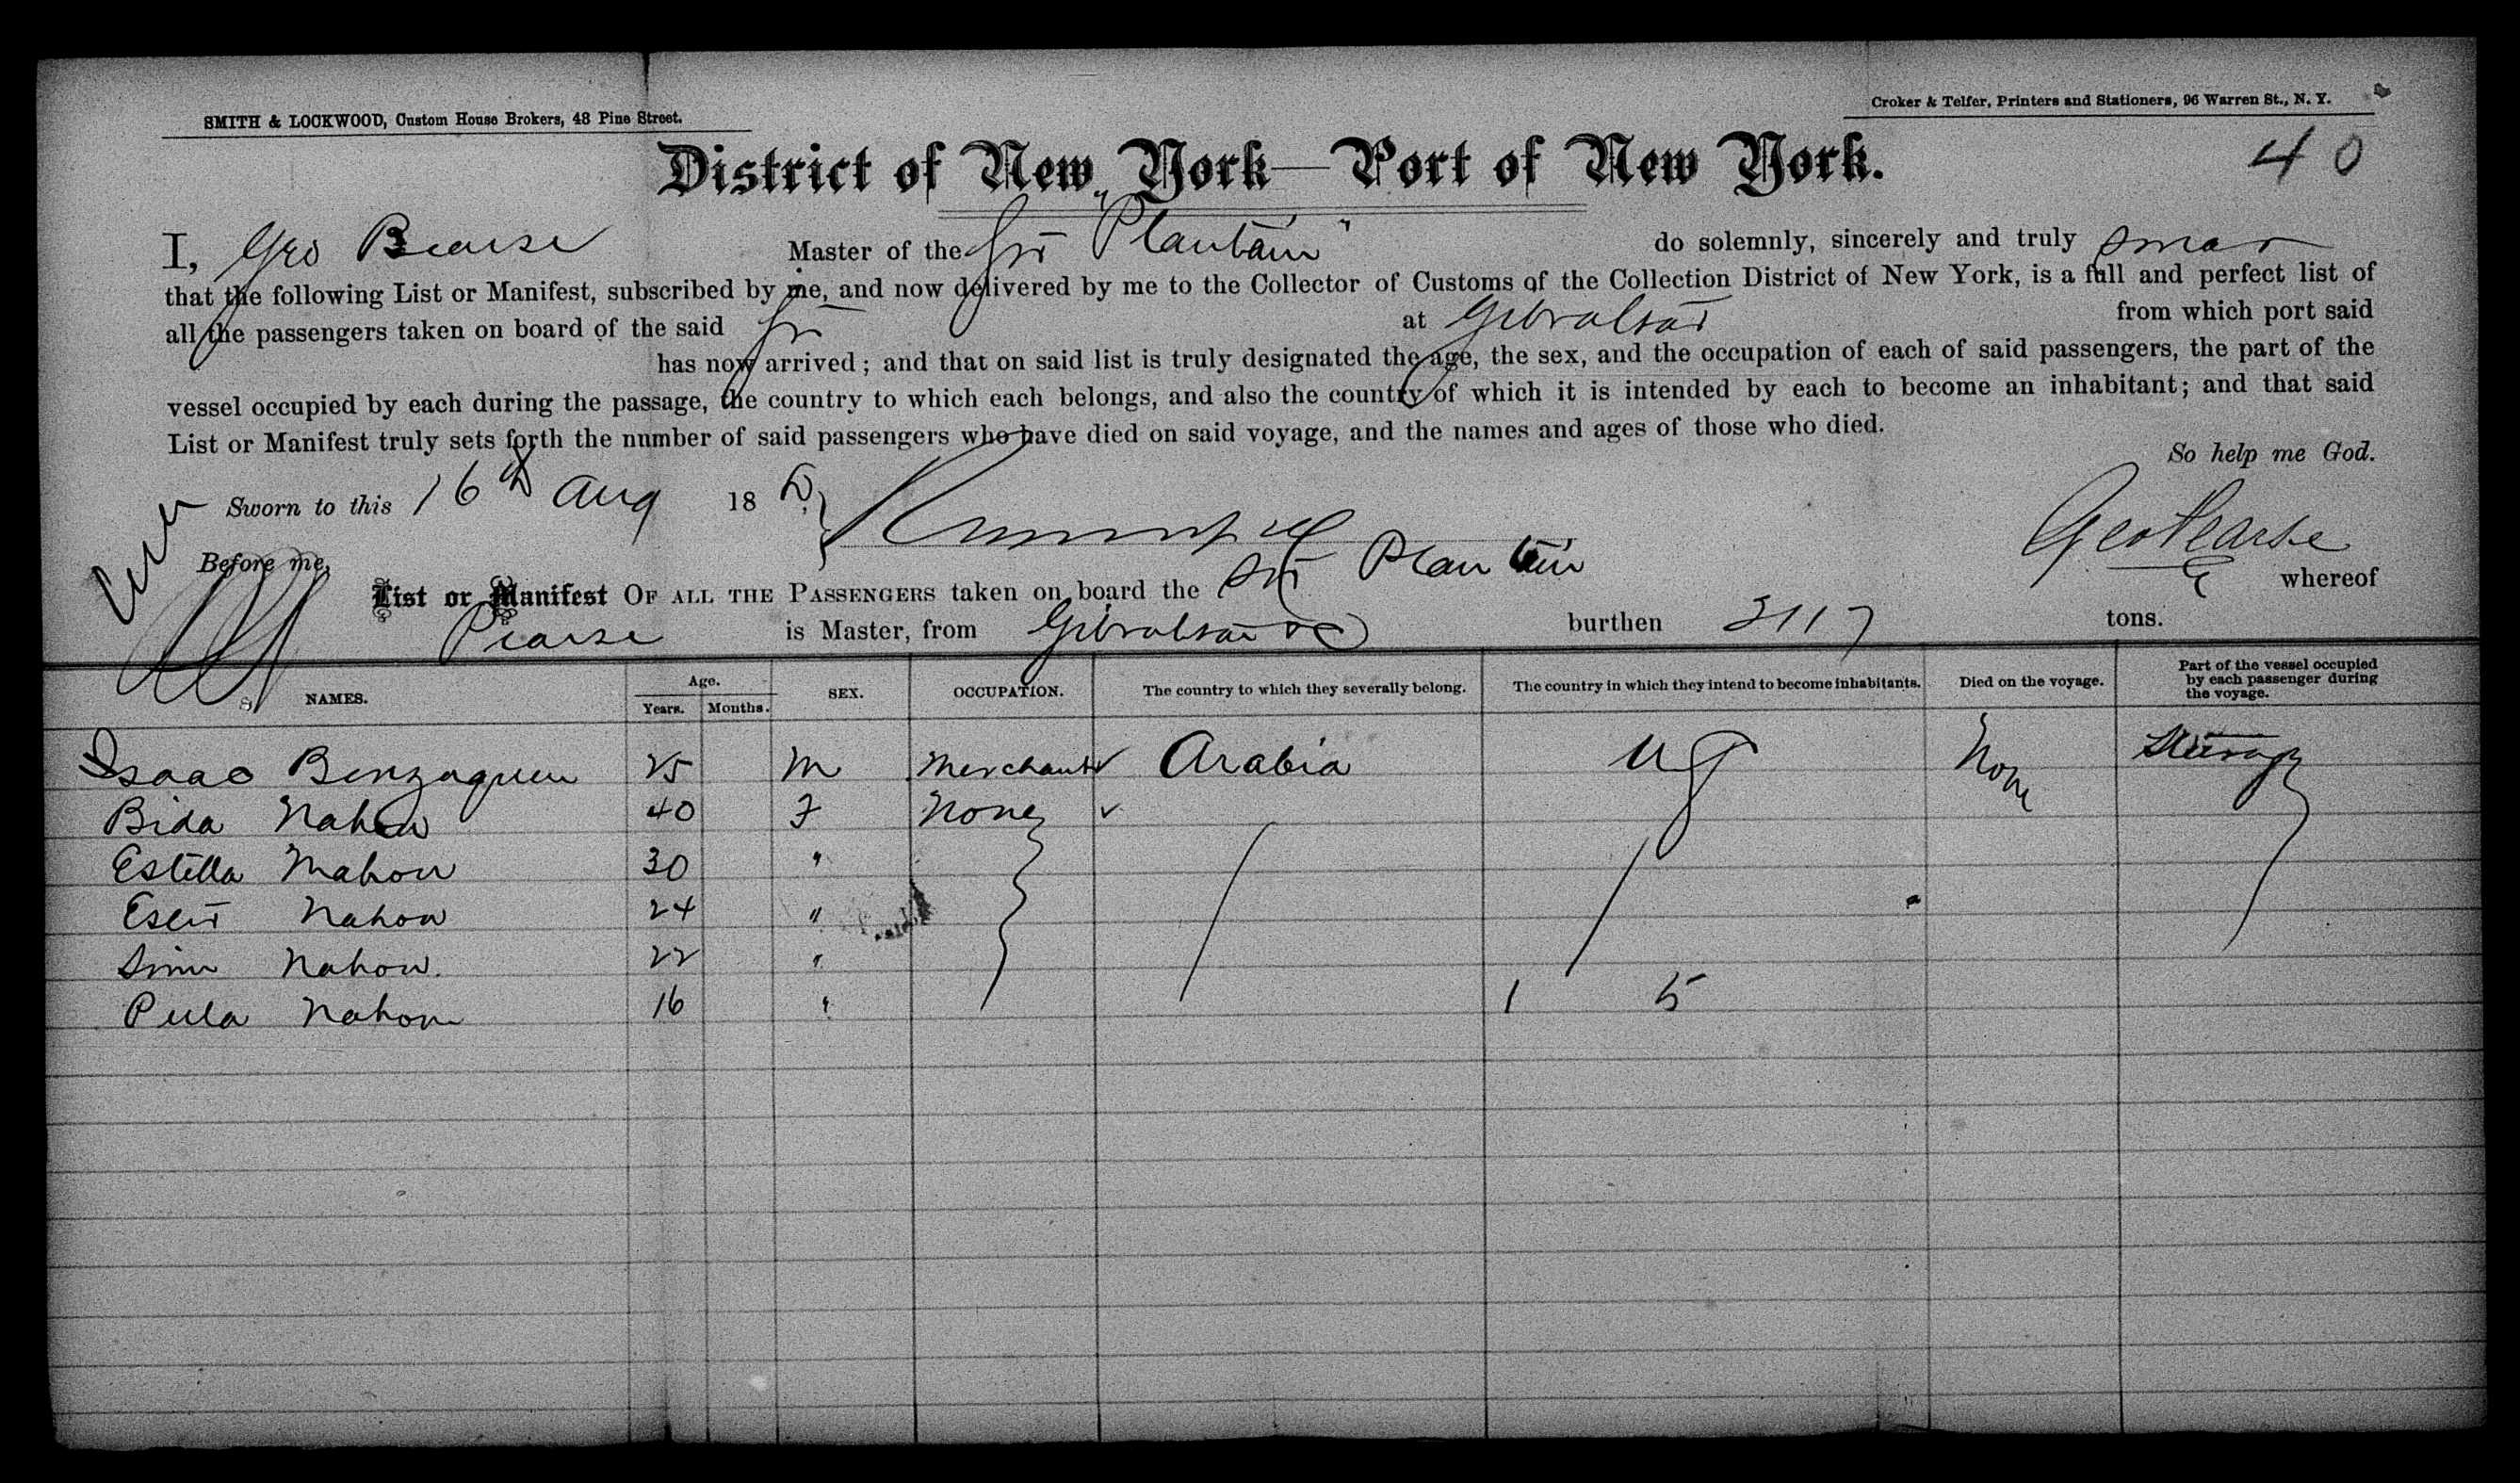 SMITH & LOCKWOOD, Custom House Brokers, 48 Pine Street.
Croker & Telfer, Printers and Stationers, 96 Warren St., N. Y.
40
District of New York—Port of New York.
I, Geo Pearse Master of the Str "Plantain" do solemnly, sincerely and truly swear
that the following List or Manifest, subscribed by me, and now delivered by me to the Collector of Customs of the Collection District of New York, is a full and perfect list of
all the passengers taken on board of the said Str at Gibraltar from which port said
has now arrived; and that on said list is truly designated the age, the sex, and the occupation of each of said passengers, the part of the
vessel occupied by each during the passage, the country to which each belongs, and also the country of which it is intended by each to become an inhabitant; and that said
List or Manifest truly sets forth the number of said passengers who have died on said voyage, and the names and ages of those who died.
So help me God.
Sworn to this 16th Aug 18
Geo Pearse
Before me,
List or Manifest OF ALL THE PASSENGERS taken on board the Str Plantain whereof
Pearse is Master, from Gibraltar &c burthen 3117 tons.
NAMES. Age. Years. Months. SEX. OCCUPATION. The country to which they severally belong. The country in which they intend to become inhabitants. Died on the voyage. Part of the vessel occupied by each passenger during the voyage.
Isaac Benzaquen 25 M Merchant ✓ Arabia US None Steerage
Bida Nahon 40 F None ✓
Estella Nahon 30 "
Nahon 24 "
Nahon 22 "
Nahon 16 " 1 5